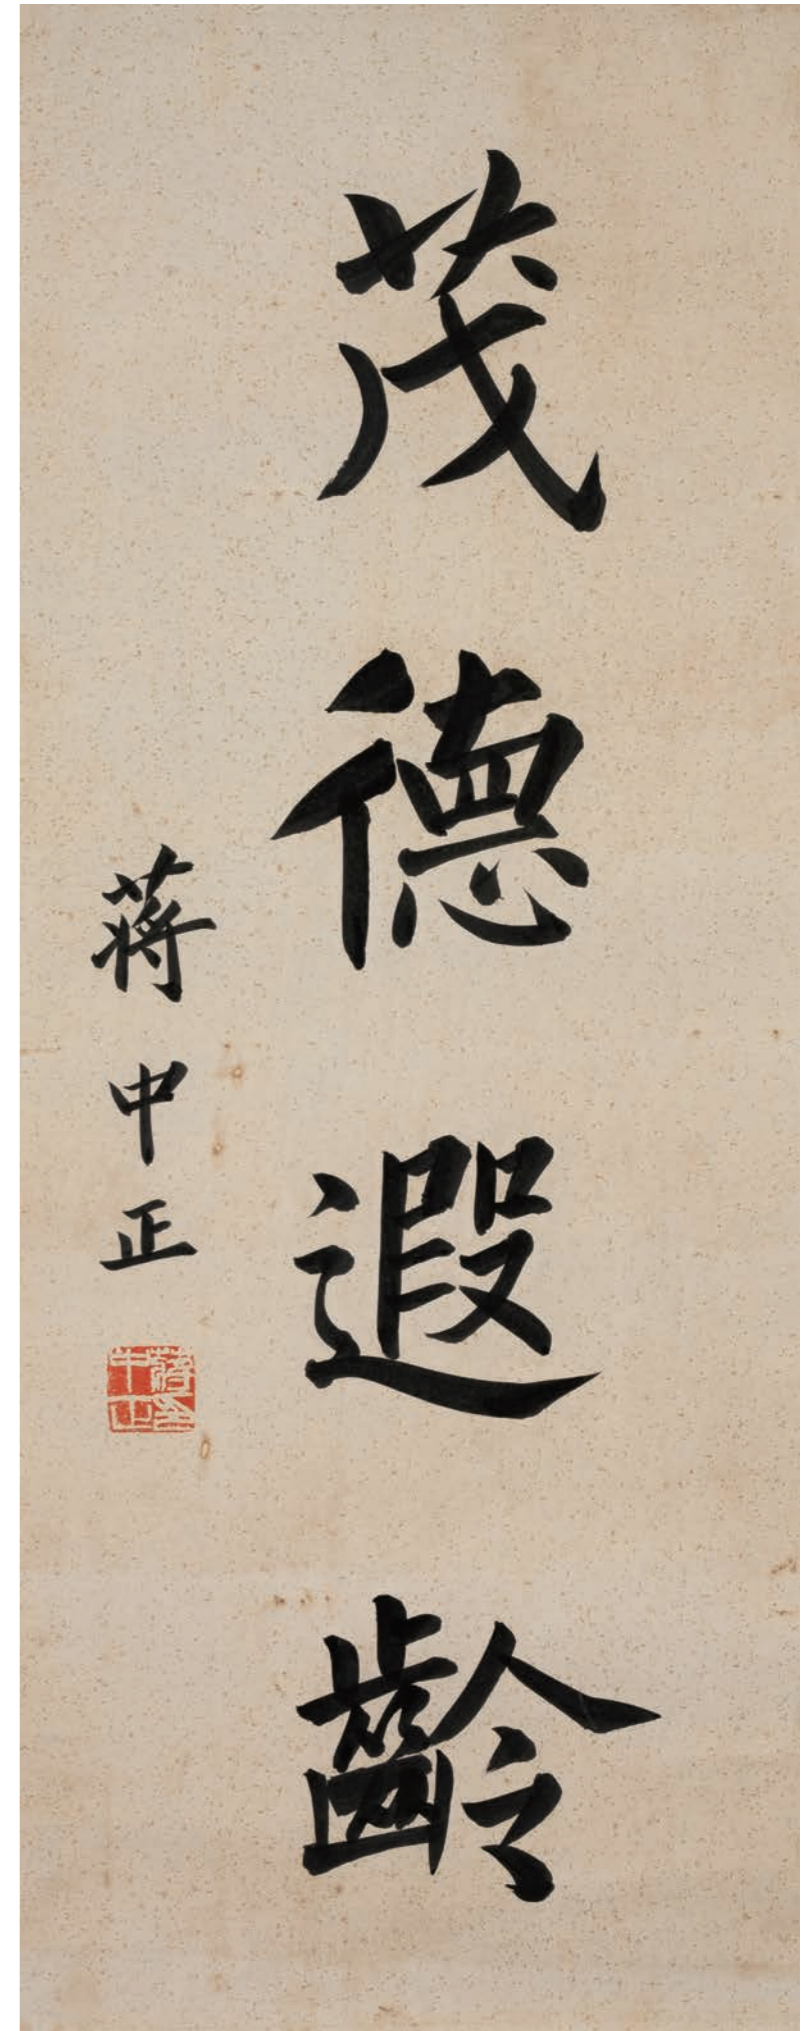 茂德遐齡
蔣中正
蔣中正印